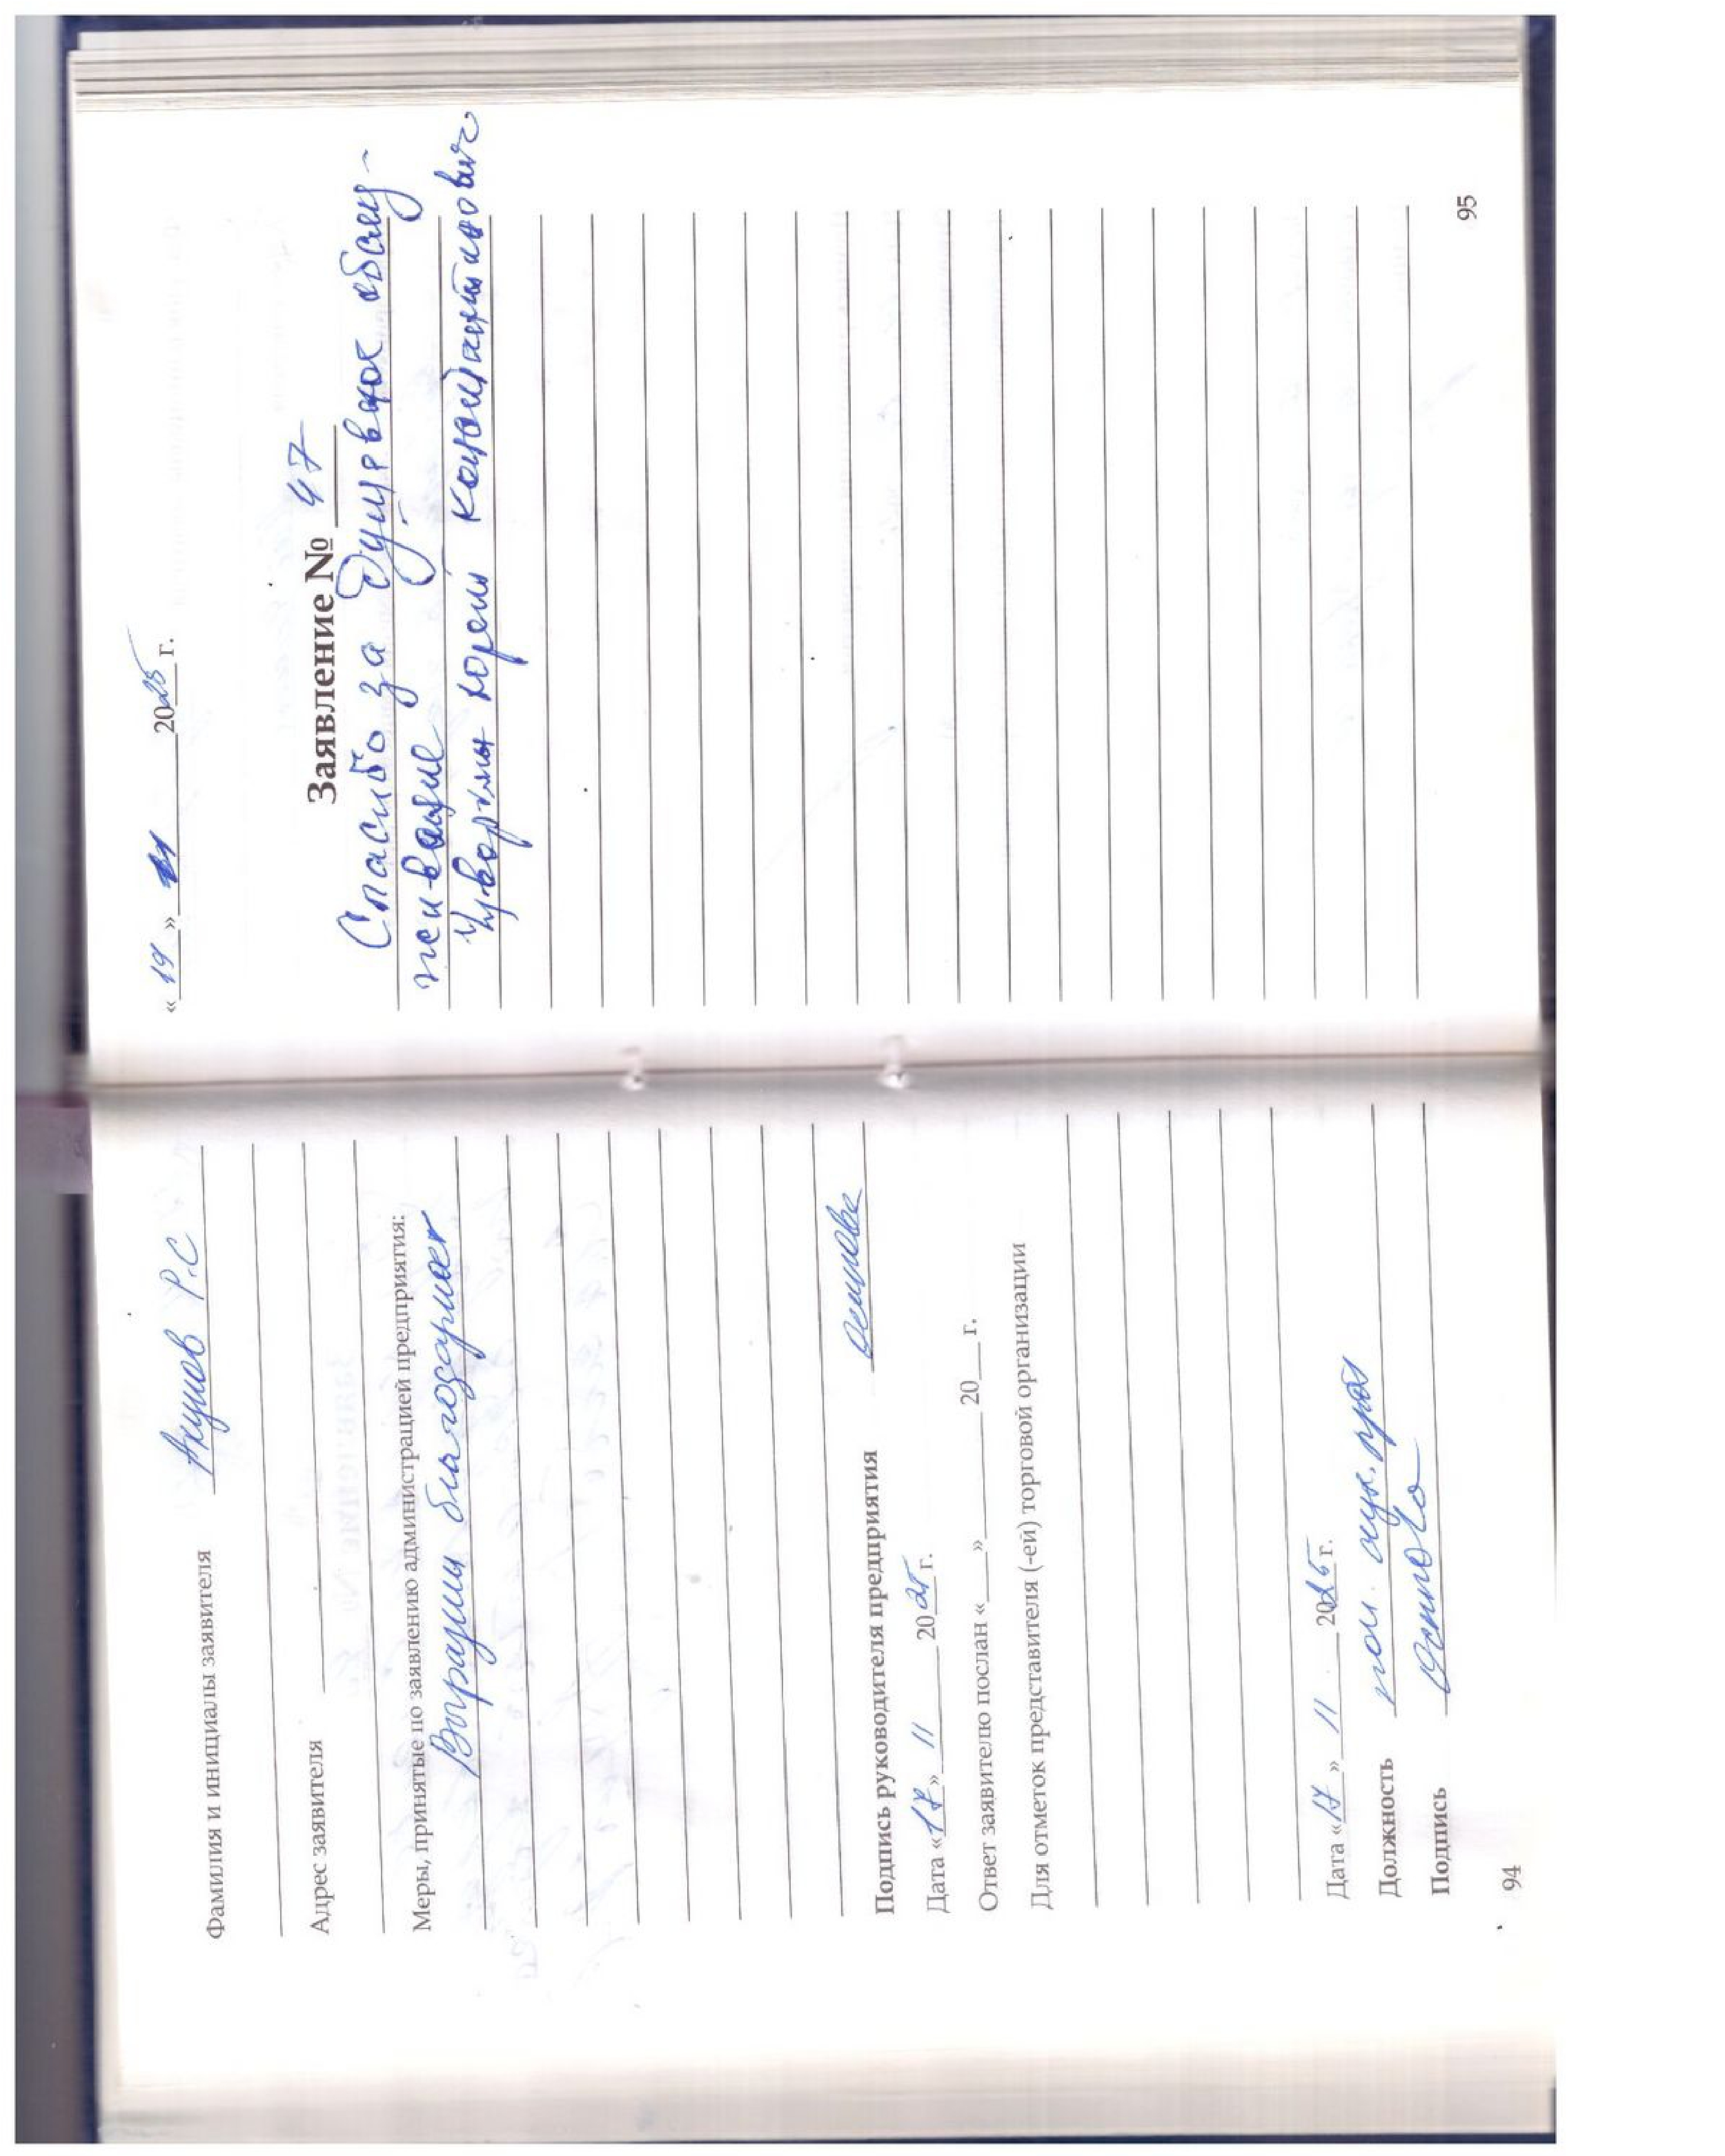 Фамилия и инициалы заявителя Акулов Р.С
Адрес заявителя
Меры, принятые по заявлению администрацией предприятия:
благодарность
Подпись руководителя предприятия
Дата «17» 11 2025 г.
Ответ заявителю послан «___» ________ 20___ г.
Для отметок представителя (-ей) торговой организации
Дата «17» 11 2025 г.
Должность
Подпись
94
«19» 11 2025 г.
Заявление № 47
Спасибо за душевное обслу-
живание
Юрий Константинович
95